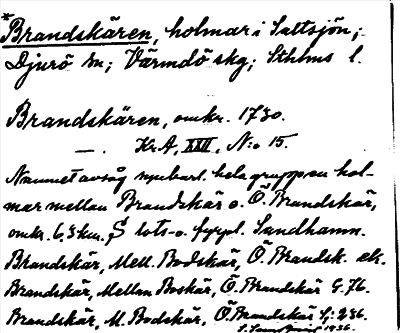 *Brandskären, holmar i Saltsjön;
Djurö sn; Värmdö skg; Sthlms l.
Brandskären, omkr. 1730.
—. Kr.A, XXII, N:o 15.
Namnet avsåg uppenbarl. hela gruppen hol-
mar mellan Brandskär o. Ö. Brandskär,
omkr. 6,3 km. S lots- o. fyrpl. Sandhamn.
Brandskär, Mell. Bodskär, Ö. Brandsk. ek.
Brandskär, Mellan Boskär, Ö. Brandskär G. 76.
Brandskär, M. Bodskär, Ö Brandskär Sj: 236.
1936.